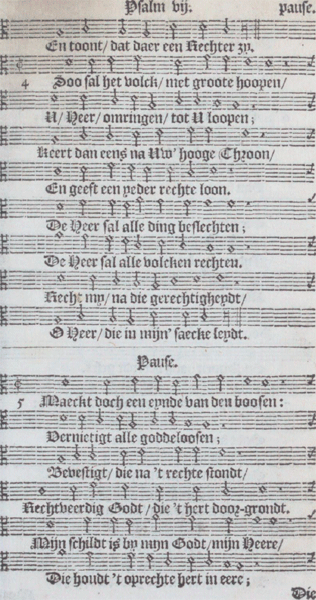 Psalm vij. pause.
En toont/ dat daer een Rechter zy.
4 Soo sal het volck/ met groote hoopen/
U/ Heer/ omringen/ tot U loopen;
Keert dan eens na Uw' hooge Throon/
En geeft een yeder rechte loon.
De Heer sal alle ding beslechten;
De Heer sal alle volcken rechten.
Recht my/ na die gerechtigheydt/
O Heer/ die in mijn' saecke leydt.
Pause.
5 Maeckt doch een eynde van den boosen:
Vernietigt alle goddeloosen;
Bevestigt/ die na 't rechte stondt/
Rechtveerdig Godt/ die 't hert door-grondt.
Mijn schildt is by mijn Godt/ mijn Heere/
Die houdt 't oprechte hert in eere;
Die